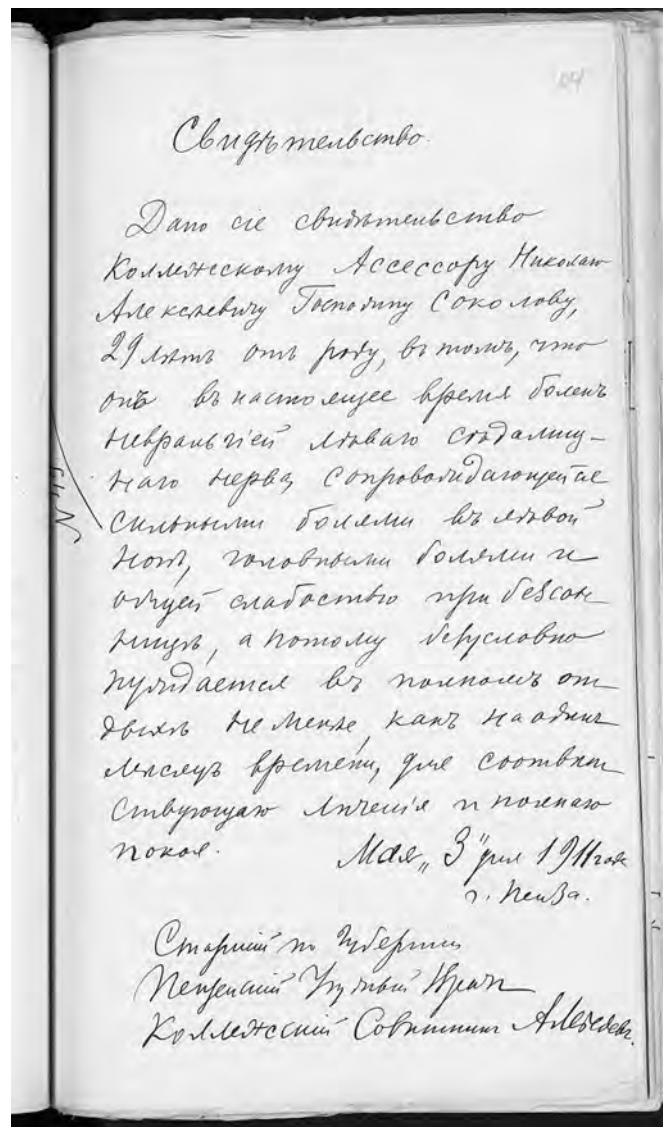 104
Свидѣтельство.
Дано сіе свидѣтельство
Коллежскому Ассессору Николаю
Алексѣевичу Господину Соколову,
29 лѣтъ отъ роду, въ томъ, что
онъ въ настоящее время боленъ
невральгіей лѣваго сѣдалищ-
наго нерва, сопровождающейся
сильными болями въ лѣвой
ногѣ, головными болями и
общей слабостью при безсон
ницѣ, а потому безусловно
нуждается въ полномъ от
дыхѣ не менѣе, какъ на одинъ
мѣсяцъ времени, для соотвѣт
ствующаго лѣченія и полнаго
покоя. Мая „3" дня 1911 года
г. Пенза.
Старшій по Губерніи
Пензенскій Уѣздный Врачъ
Коллежскій Совѣтникъ АЛебедевъ.